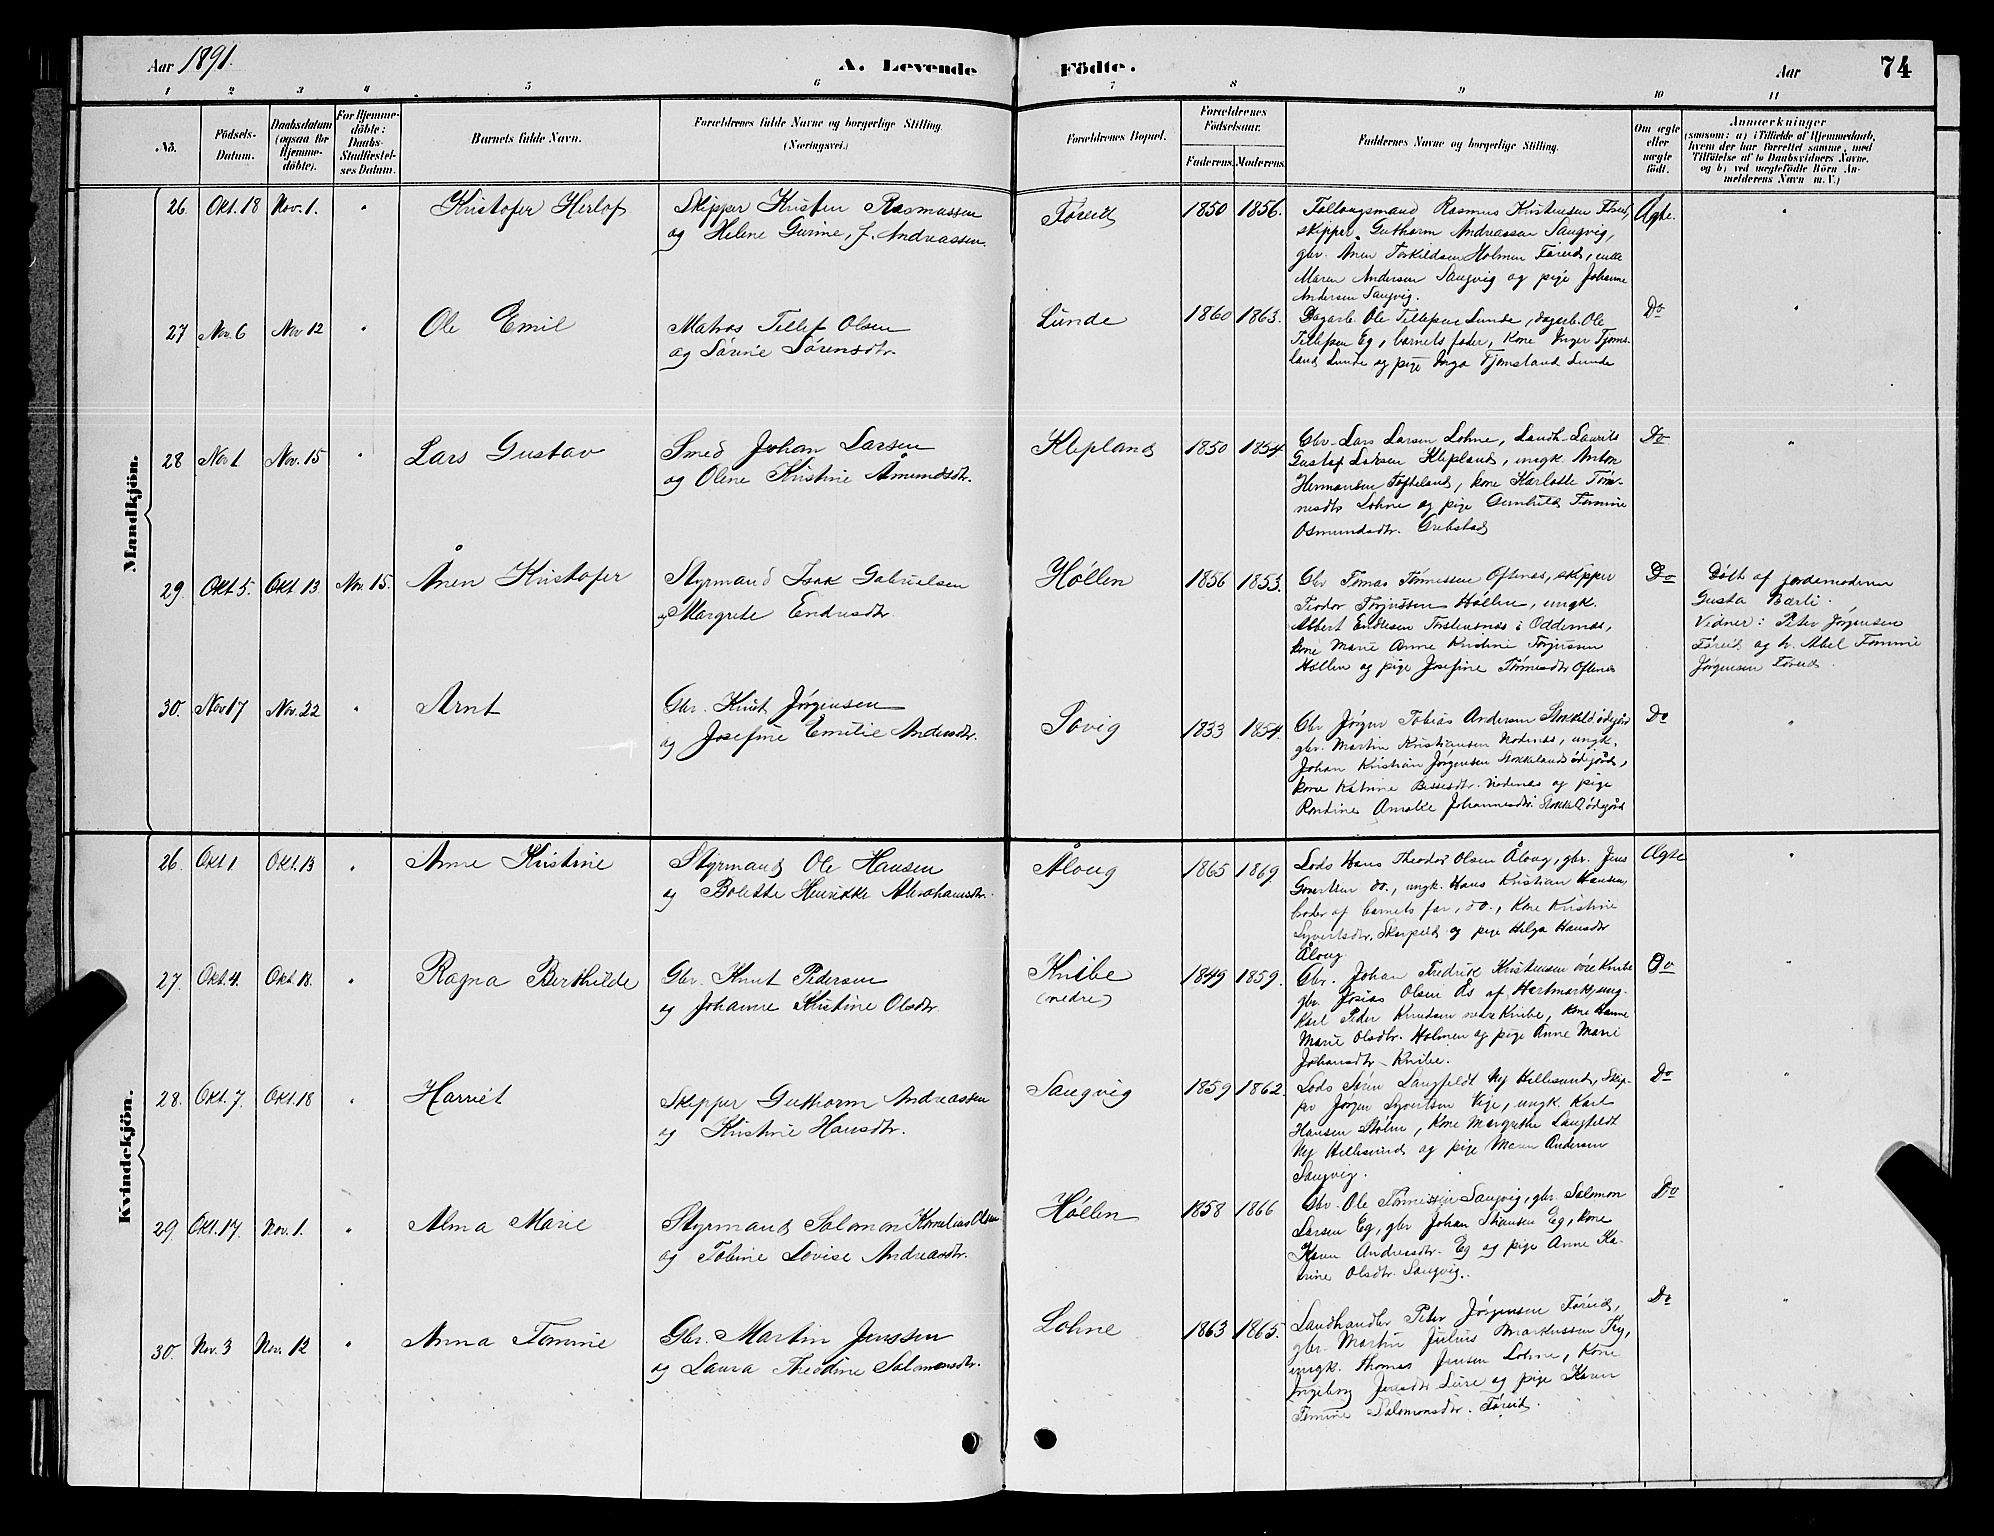 Aar 1891.
A. Levende Födte.
Aar
74
1 2 3 4 5 6 7 8 9 10 11
No.
Födsels-Datum.
Daabsdatum (ogsaa for Hjemme-döbte).
For Hjemme-döbte: Daabs-Stadfæstel-ses Datum.
Barnets fulde Navn.
Forældrenes fulde Navne og borgerlige Stilling (Næringsvei.)
Forældrenes Bopæl.
Forældrenes Födselsaar.
Faderens. Moderens.
Faddernes Navne og borgerlige Stilling.
Om ægte eller uægte födt.
Anmærkninger
(saasom: a) i Tilfælde af Hjemmedaab,
hvem der har forrettet samme, med
Tilføielse af to Daabsvidners Navne.
og b) ved uægtefödte Börn An-
melderens Navn m. V.)
Mandkjön.
26 Okt. 18 Nov. 1. " Kristofer Herlof
Skipper Kristen Rasmussen
og Helene Gurine, f. Andreassen.
Føreid 1850 1856.
Rasmus Kristensen
skipper Guthorm Andreassen Saugvig,
gbr. Anen Torkildsen Holmen Føreid, enke
Maren Andersen Saugvig og pige Johanne
Andersen Saugvig.
Ægte. "
27 Nov. 6 Nov 12 " Ole Emil
Matros Tellef Olsen
og Sørine Sørensdtr.
Lunde 1860 1863.
Dagarb. Ole Tellefsen Lunde, dagarb. Ole
Tellefsen Eg, barnets fader, kone Inger Tjoms-
land Lunde og pige Inga Tjomsland Lunde
Do "
28 Nov 1 Nov. 15 " Lars Gustav
Smed Johan Larsen
og Olene Kristine Åmundsdtr.
Klepland 1850 1854
Gbr. Lars Larsen Lohne, Landh. Laurits
Gustaf Larsen Klepland, ungk. Anton
Hermansen Tofteland, kone Karlotte Tøn-
nesdtr Lohne og pige Gunhild Tomine
Osmundsdtr. Grebstad
Do "
29. Okt. 5. Okt. 13 Nov. 15. Ånen Kristofer
Styrmand Isak Gabrielsen
og Margrete Endresdtr.
Høllen 1856 1853.
Gbr Tomas Tønnessen Oftenes, skipper
Teodor Torjussen Høllen, ungk.
Albert Endresen Torstensnes i Oddernes,
kone Marie Anne Kristine Torjussen
Høllen og pige Josefine Tønnesdtr Oftenes
Do
Døbt af jordemoderen
Gusta Bærli.
Vidner: Peter Jørgensen
Føreid og h. Abel Tomine
Jørgensen Føreid.
30. Nov 17 Nov. 22 " Arnt
Gbr. Knut Jørgensen
og Josefine Emilie Andersdtr.
Søvig 1833 1854.
Gbr Jørgen Tobias Andersen Stokkel. ødegård
gbr. Martin Kristiansen Nodenes, ungk.
Johan Kristian Jørgensen Stokkelands ødegård,
kone Katrine Bessesdtr. Nodenes og pige
Rondine Amalie Johannesdtr Stokkel. ødegård
Do "
Kvindekjön.
26. Okt. 1 Okt. 13 " Anne Kristine
Styrmand Ole Hansen
og Bolette Henrikke Abrahamsdtr.
Åloug 1865 1869
Lods Hans Theodor Olsen Åloug, gbr. Jens
Govertsen do., ungk. Hans Kristian Hansen,
broder af barnets far, do., kone Kristine
Syvertsdtr. Skarpeid og pige Helga Hansdtr
Åloug
Ægte "
27. Okt. 4. Okt. 18. " Ragna Berthilde
Gbr. Knut Pedersen
og Johanne Kristine Olsdtr.
Knibe (nedre) 1849 1859.
Gbr. Johan Fredrik Kristensen øvre Knibe
gbr. Josias Olsen Ås af Hartmark, ung-
Karl Peder Knudsen Knibe, kone Hanne
Marie Olsdtr. Holmen og pige Anne Marie
Johansdtr Knibe.
Do "
28. Okt. 7. Okt. 18 " Harriet
Skipper Guthorm Andreassen
og Kristine Hansdtr.
Saugvig 1859 1862
Lods Søren Langfeldt Ny Hellesund, Skip-
per Jørgen Syvertsen Vige, ungk Karl
Hansen Stølen, kone Margrethe Langfeldt
Ny Hellesund og pige Maren Andersen
Saugvig.
Do "
29. Okt. 17. Nov. 1. " Alma Marie
Styrmand Salomon Kornelius Olsen
og Tobine Lovise Andreasdtr.
Høllen 1858 1866
Gbr. Ole Tønnessen Saugvig, gbr. Salomon
Larsen Eg, gbr Johan Stiansen Eg, kone
Karen Andreasdtr. Eg og pige Anne Ka-
trine Olsdtr. Saugvig.
Do "
30. Nov. 3 Nov. 12 " Anna Tomine
Gbr. Martin Jenssen
og Laura Theodine Salomonsdtr.
Lohne 1863 1865.
Landhandler Peter Jørgensen Føreid,
gbr. Martin Julius Markussen
ungk. Thomas Jensen Lohne, kone
Ingeborg Jensdtr Lure og pige Karen
Tomine Salomonsdtr. Føreid.
Do "